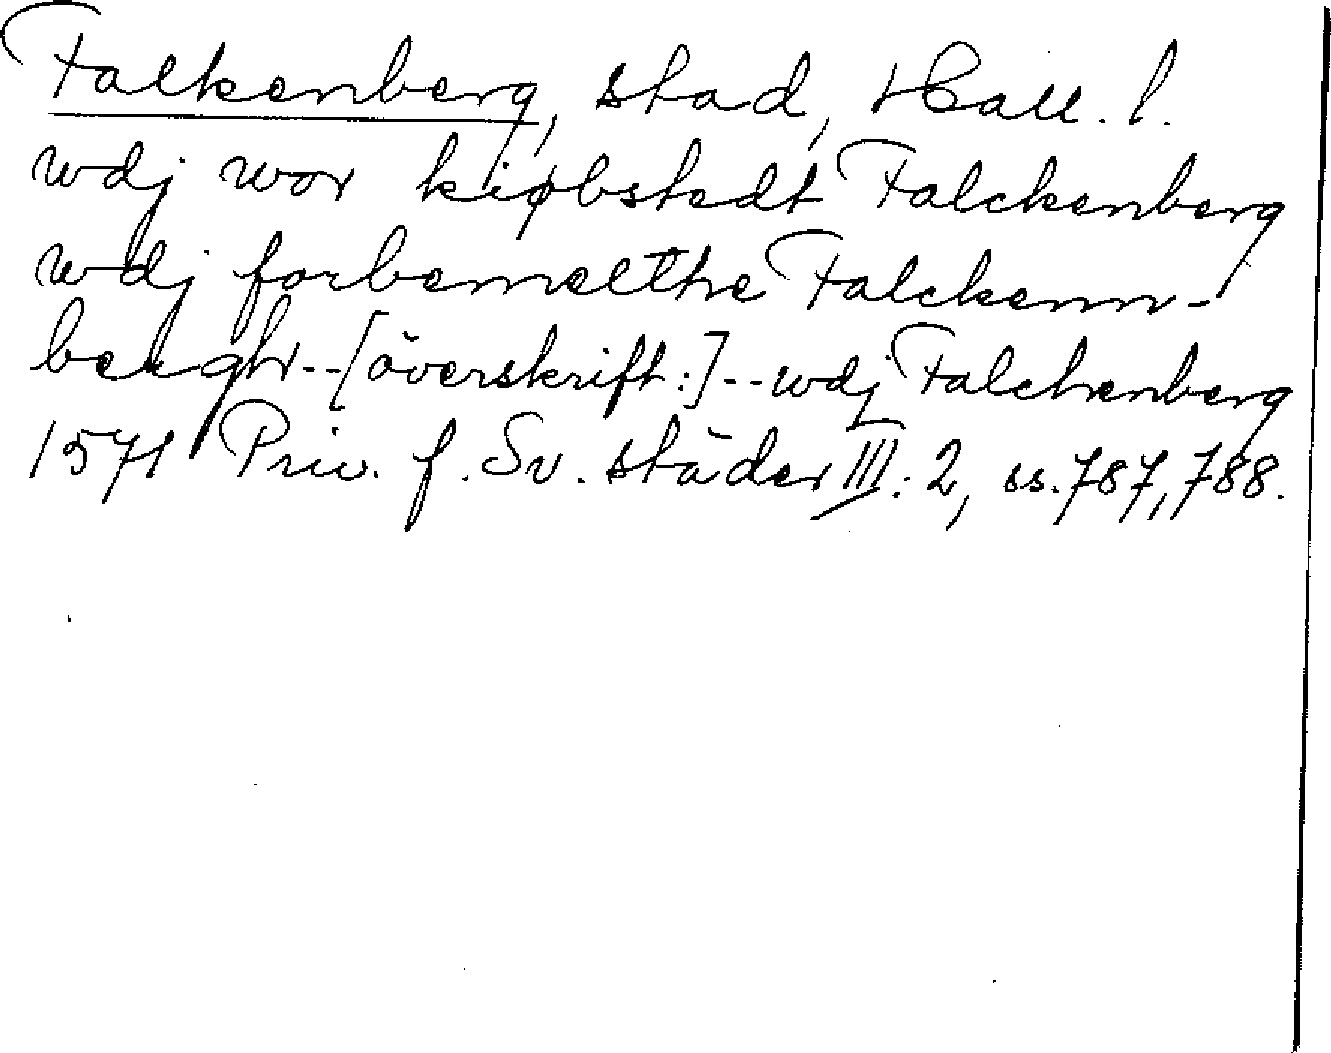 Falkenberg, stad, Hall. l.
wdj wor kiøbstedt Falckenberg
wdj forbemelthe Falckenn-
berghr--[överskrift:]--wdj Falchenberg
1571 Priv. f. Sv. städer III: 2, ss. 787, 788.